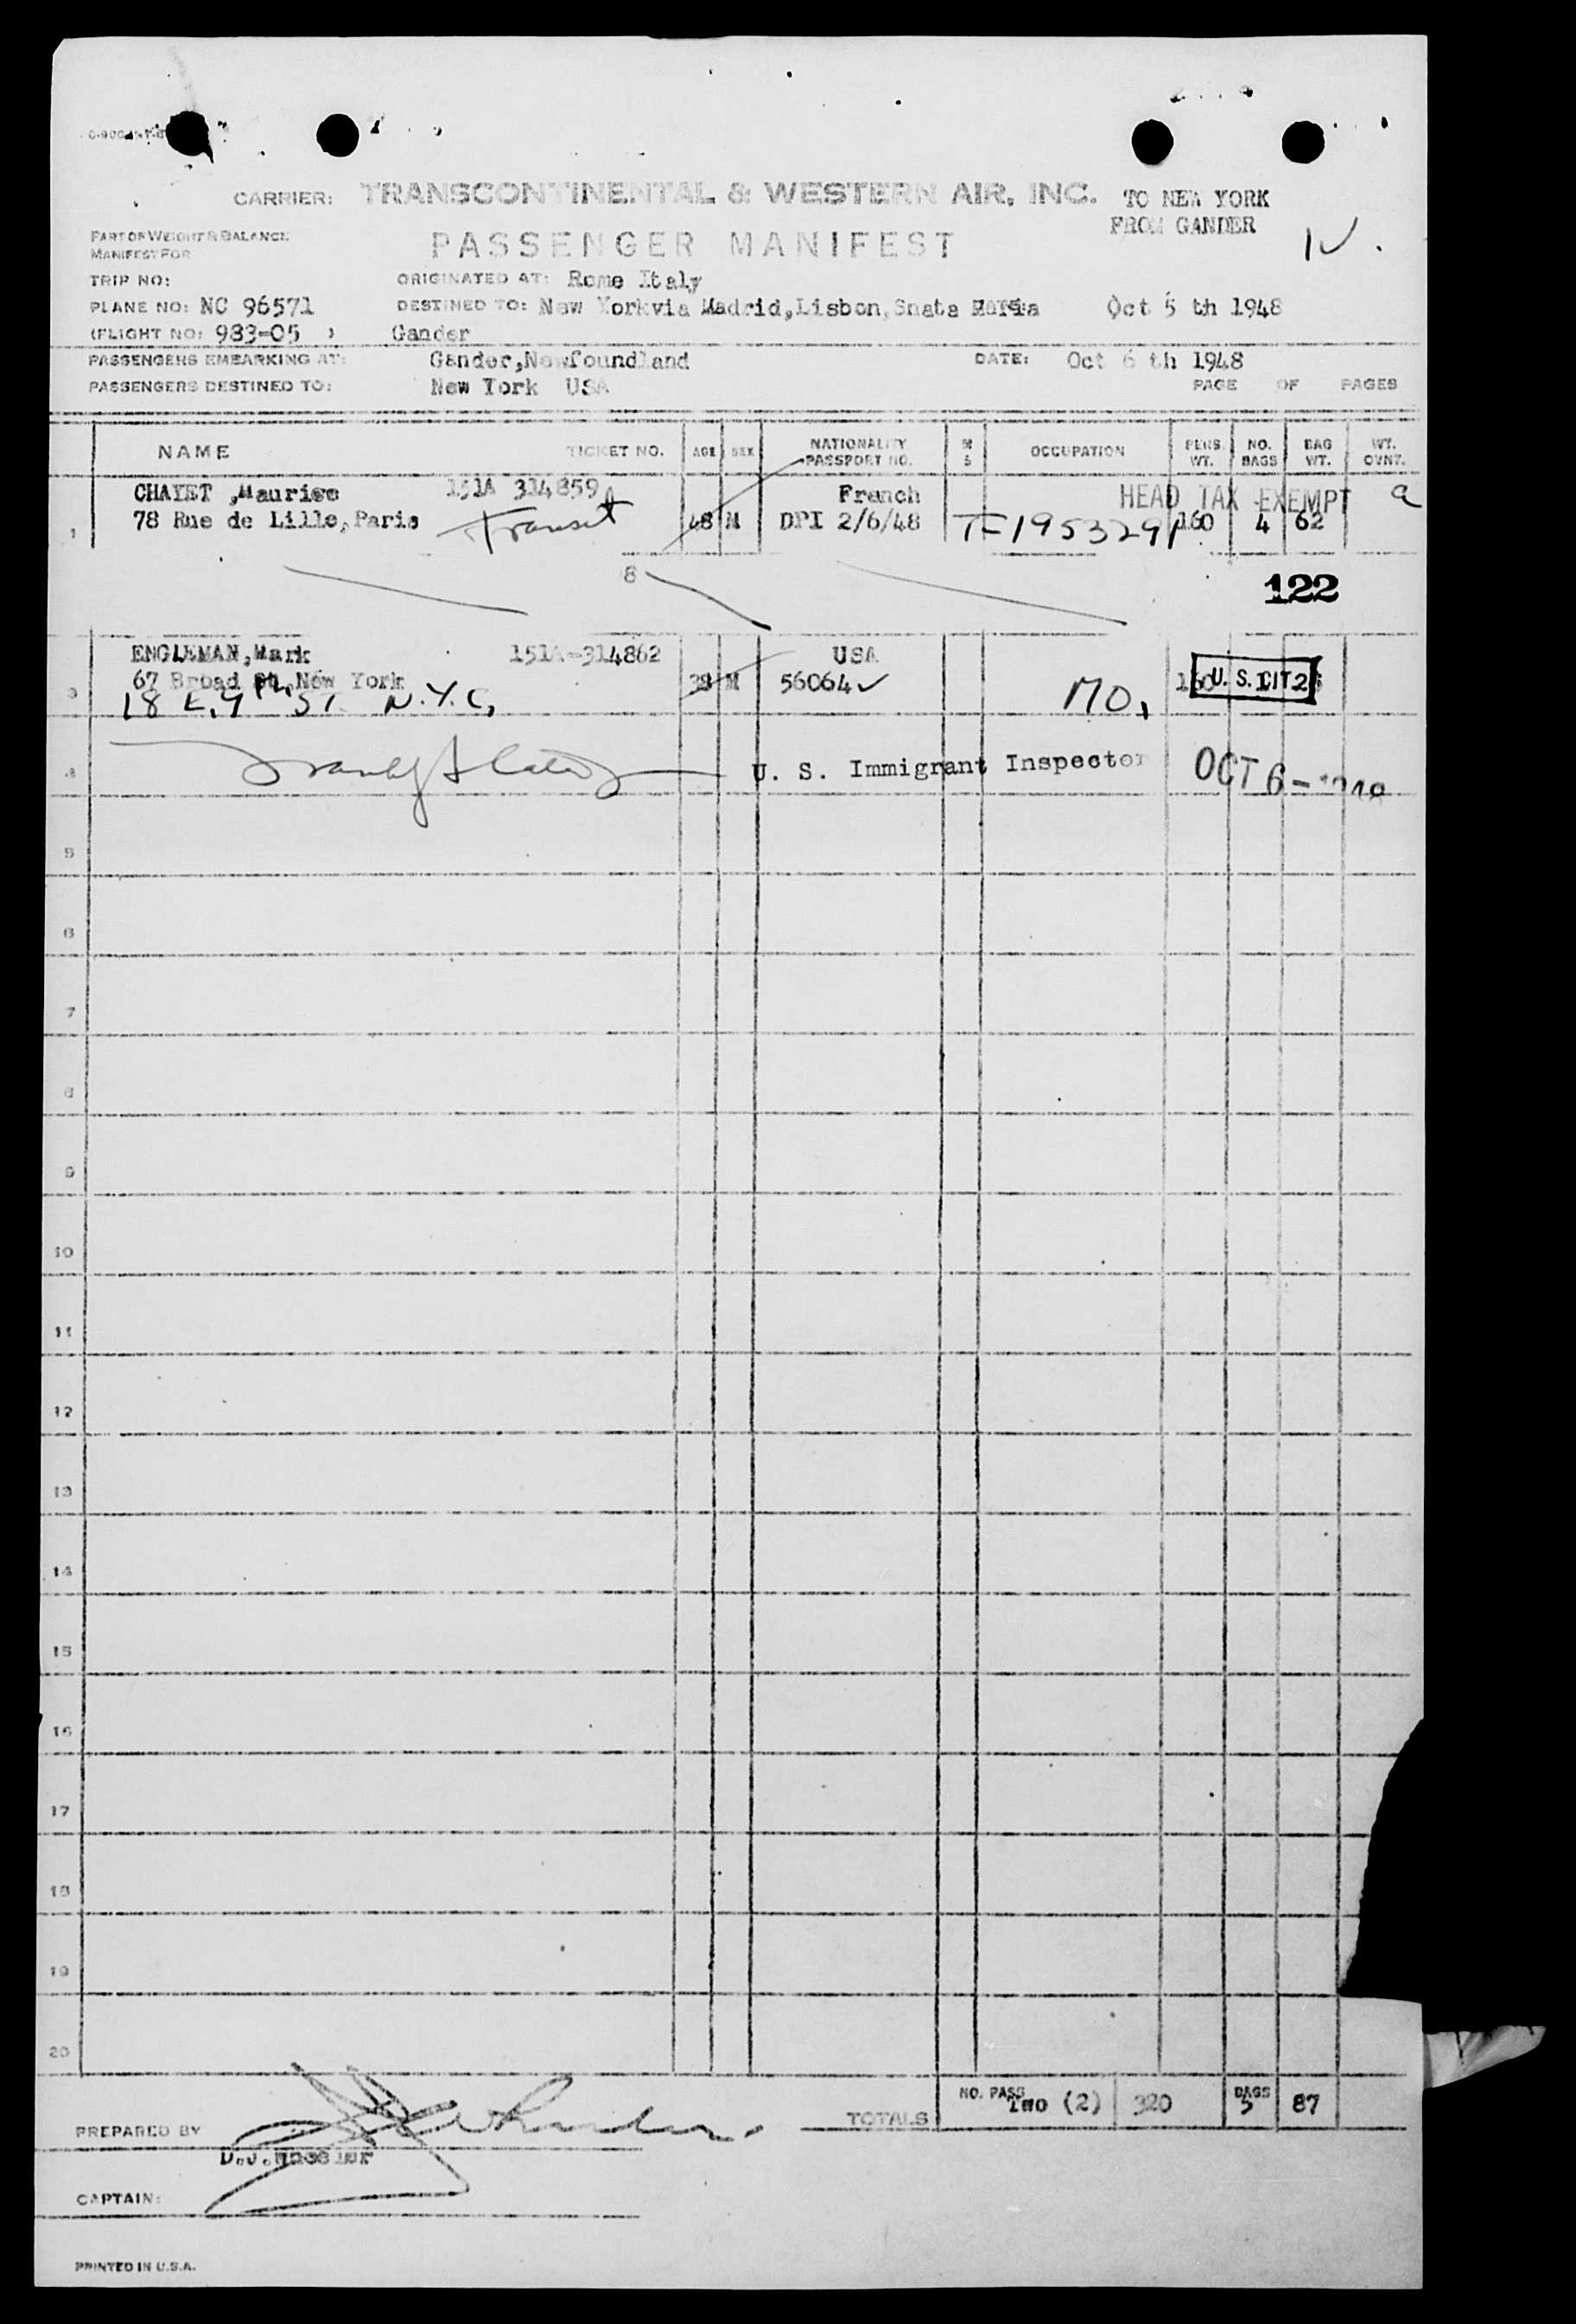 CARRIER: TRANSCONTINENTAL & WESTERN AIR, INC. TO NEW YORK
FROM GANDER
PART OF WEIGHT & BALANCE
MANIFEST FOR
PASSENGER MANIFEST
TRIP NO: ORIGINATED AT: Rome Italy
PLANE NO: NC 96571 DESTINED TO: New York via Madrid,Lisbon,Snata Oct 5 th 1948
(FLIGHT NO: 983-05 ) Gander
PASSENGERS EMBARKING AT: Gander,Newfoundland DATE: Oct 6 th 1948
PASSENGERS DESTINED TO: New York USA PAGE OF PAGES
NAME TICKET NO. AGE SEX NATIONALITY PASSPORT NO. M S OCCUPATION PERS. WT. NO. BAGS BAG WT. WT. OVNT.
CHAYET ,Maurice 151A 314859 French HEAD TAX EXEMPT a
1 78 Rue de Lille,Paris Transit 48 M DPI 2/6/48 T-195329 160 4 62
8
122
ENGLEMAN,Mark 151A-314862 USA
3 67 Broad St,New York 38 M 56064 ✓ U. S. CIT
18 E. 9th ST. N.Y.C. MO.
4 U. S. Immigrant Inspector OCT 6-
5
6
7
8
9
10
11
12
13
14
15
16
17
18
19
20
TOTALS NO. PASS Two (2) 320 BAGS 5 87
PREPARED BY
CAPTAIN:
PRINTED IN U.S.A.